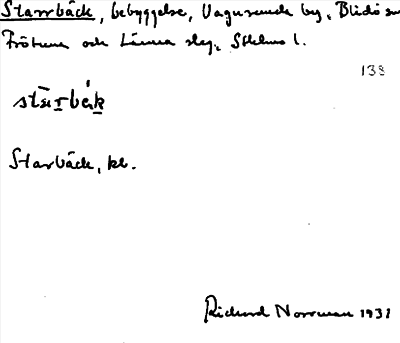 Starrbäck, bebyggelse, Vagnsunda by, Blidö sn
Frötuna och Länna slg, Sthlms l.
138
stārbäk
Starbäck, kb.
Richard Norrman 1931